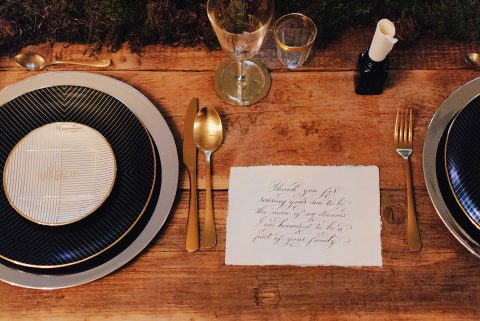 Thank you for
raising your son to be
the man of my dreams
I am honored to be a
part of your family